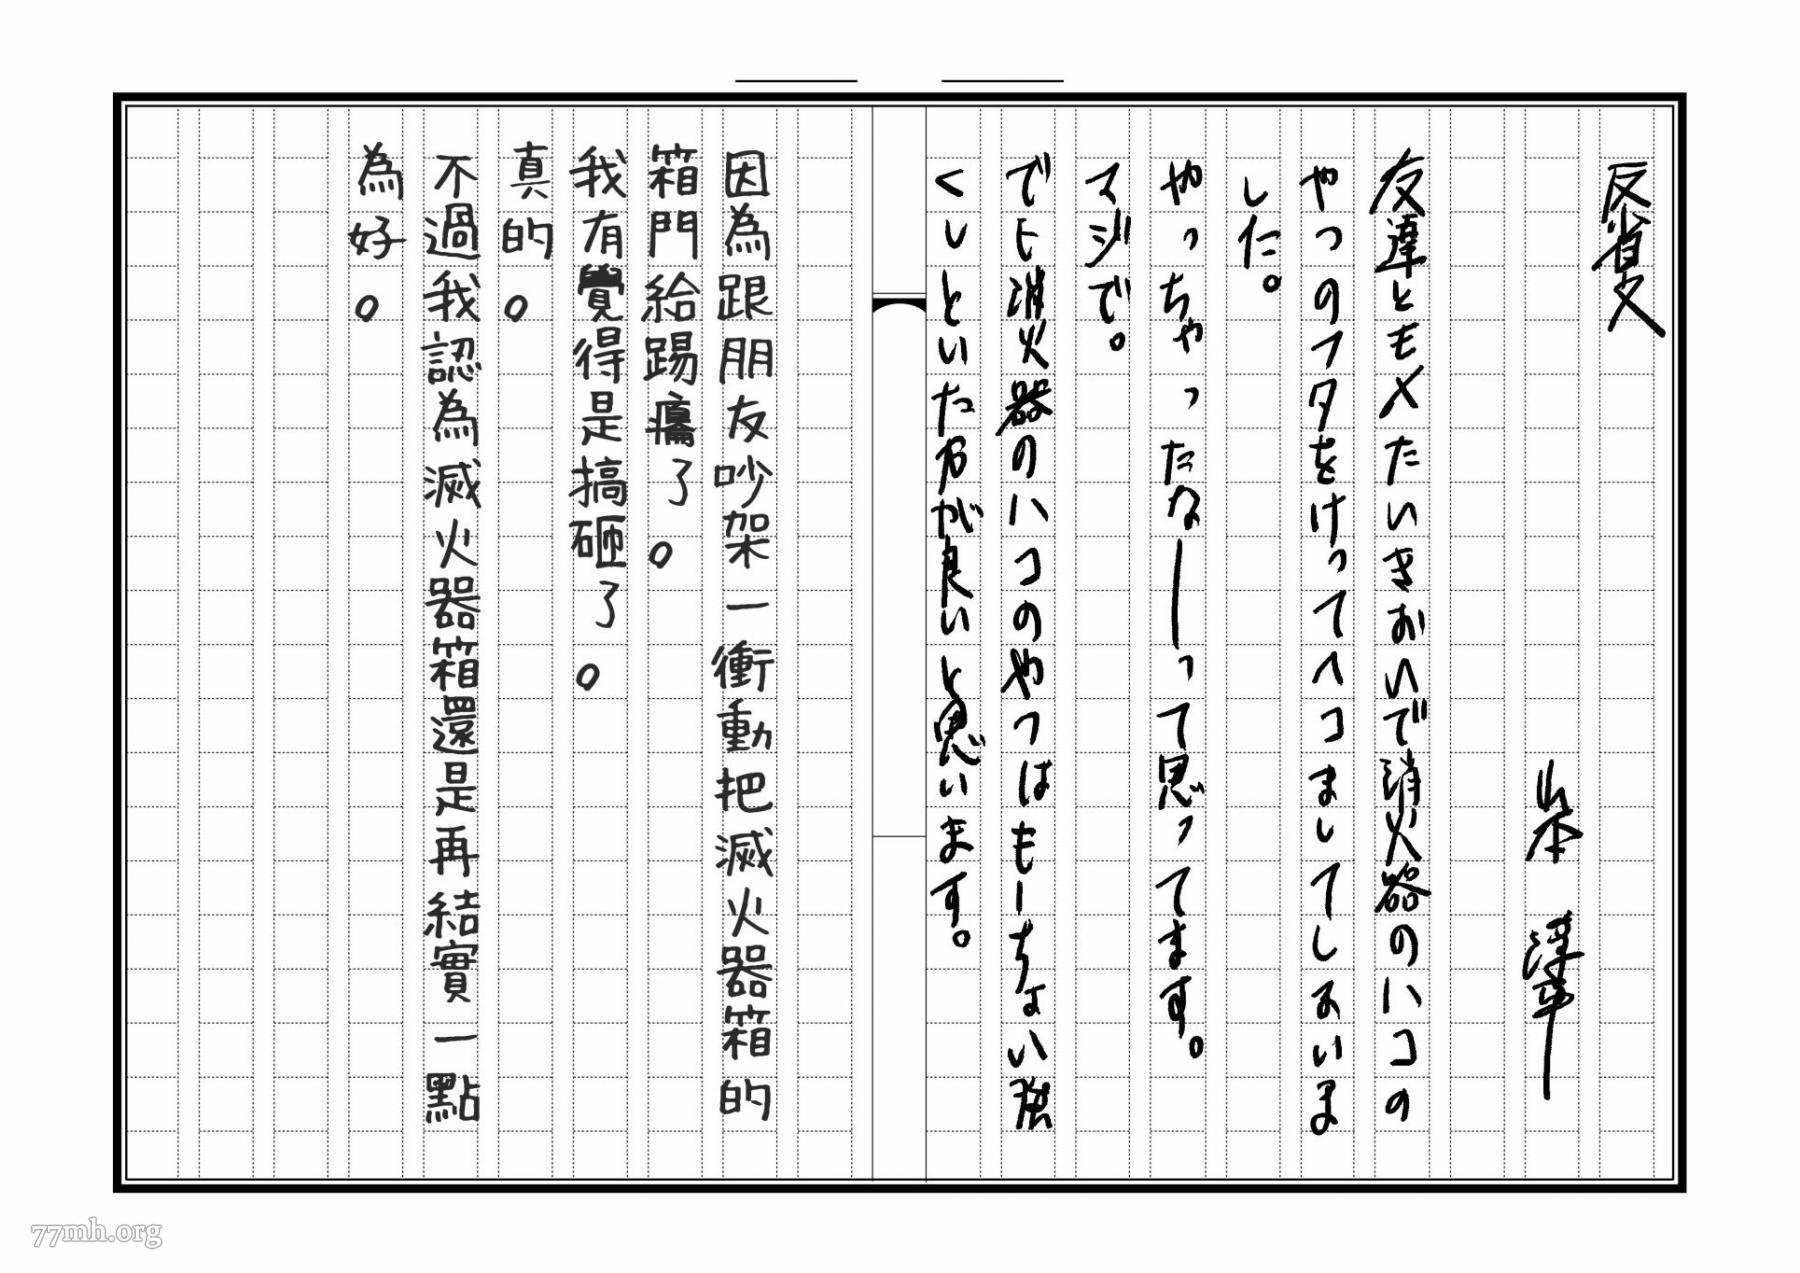 反省文
山本 淳平
友達ともメたいきおいで消火器のハコの
やつのフタをけってヘコましてしまいま
した。
やっちゃったなーって思ってます。
マジで。
でも消火器のハコのやつはもーちょい強
くしといた方が良いと思います。
因為跟朋友吵架一衝動把滅火器箱的
箱門給踢癟了。
我有覺得是搞砸了。
真的。
不過我認為滅火器箱還是再結實一點
為好。
77mh.org